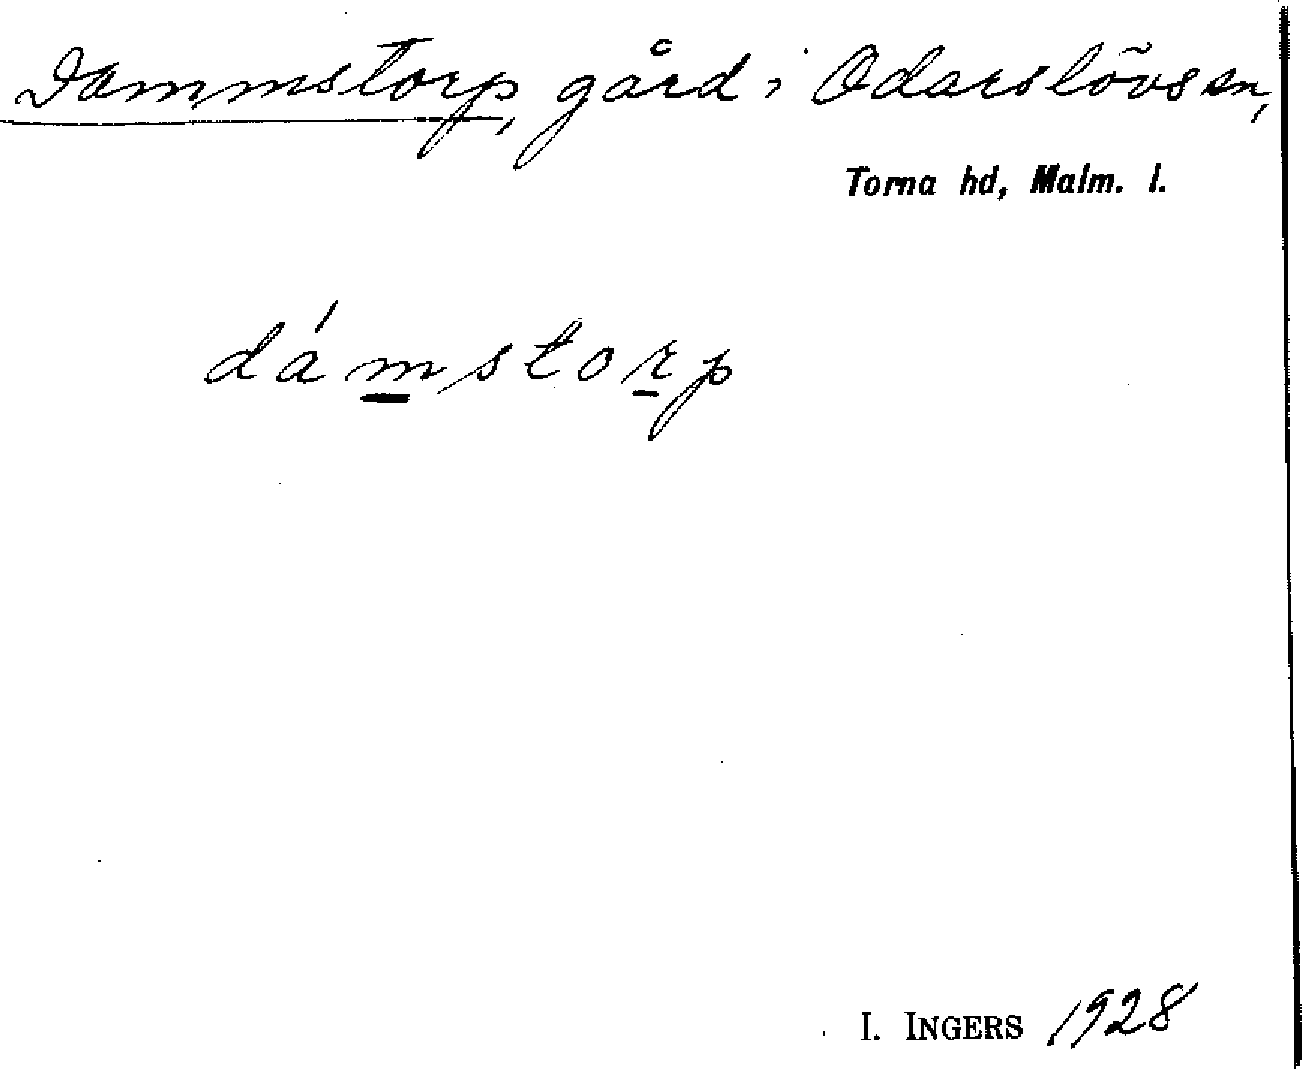 Dammstorp, gård i Odarslövs sn,
Torna hd, Malm. l.
dámstorp
I. INGERS 1928